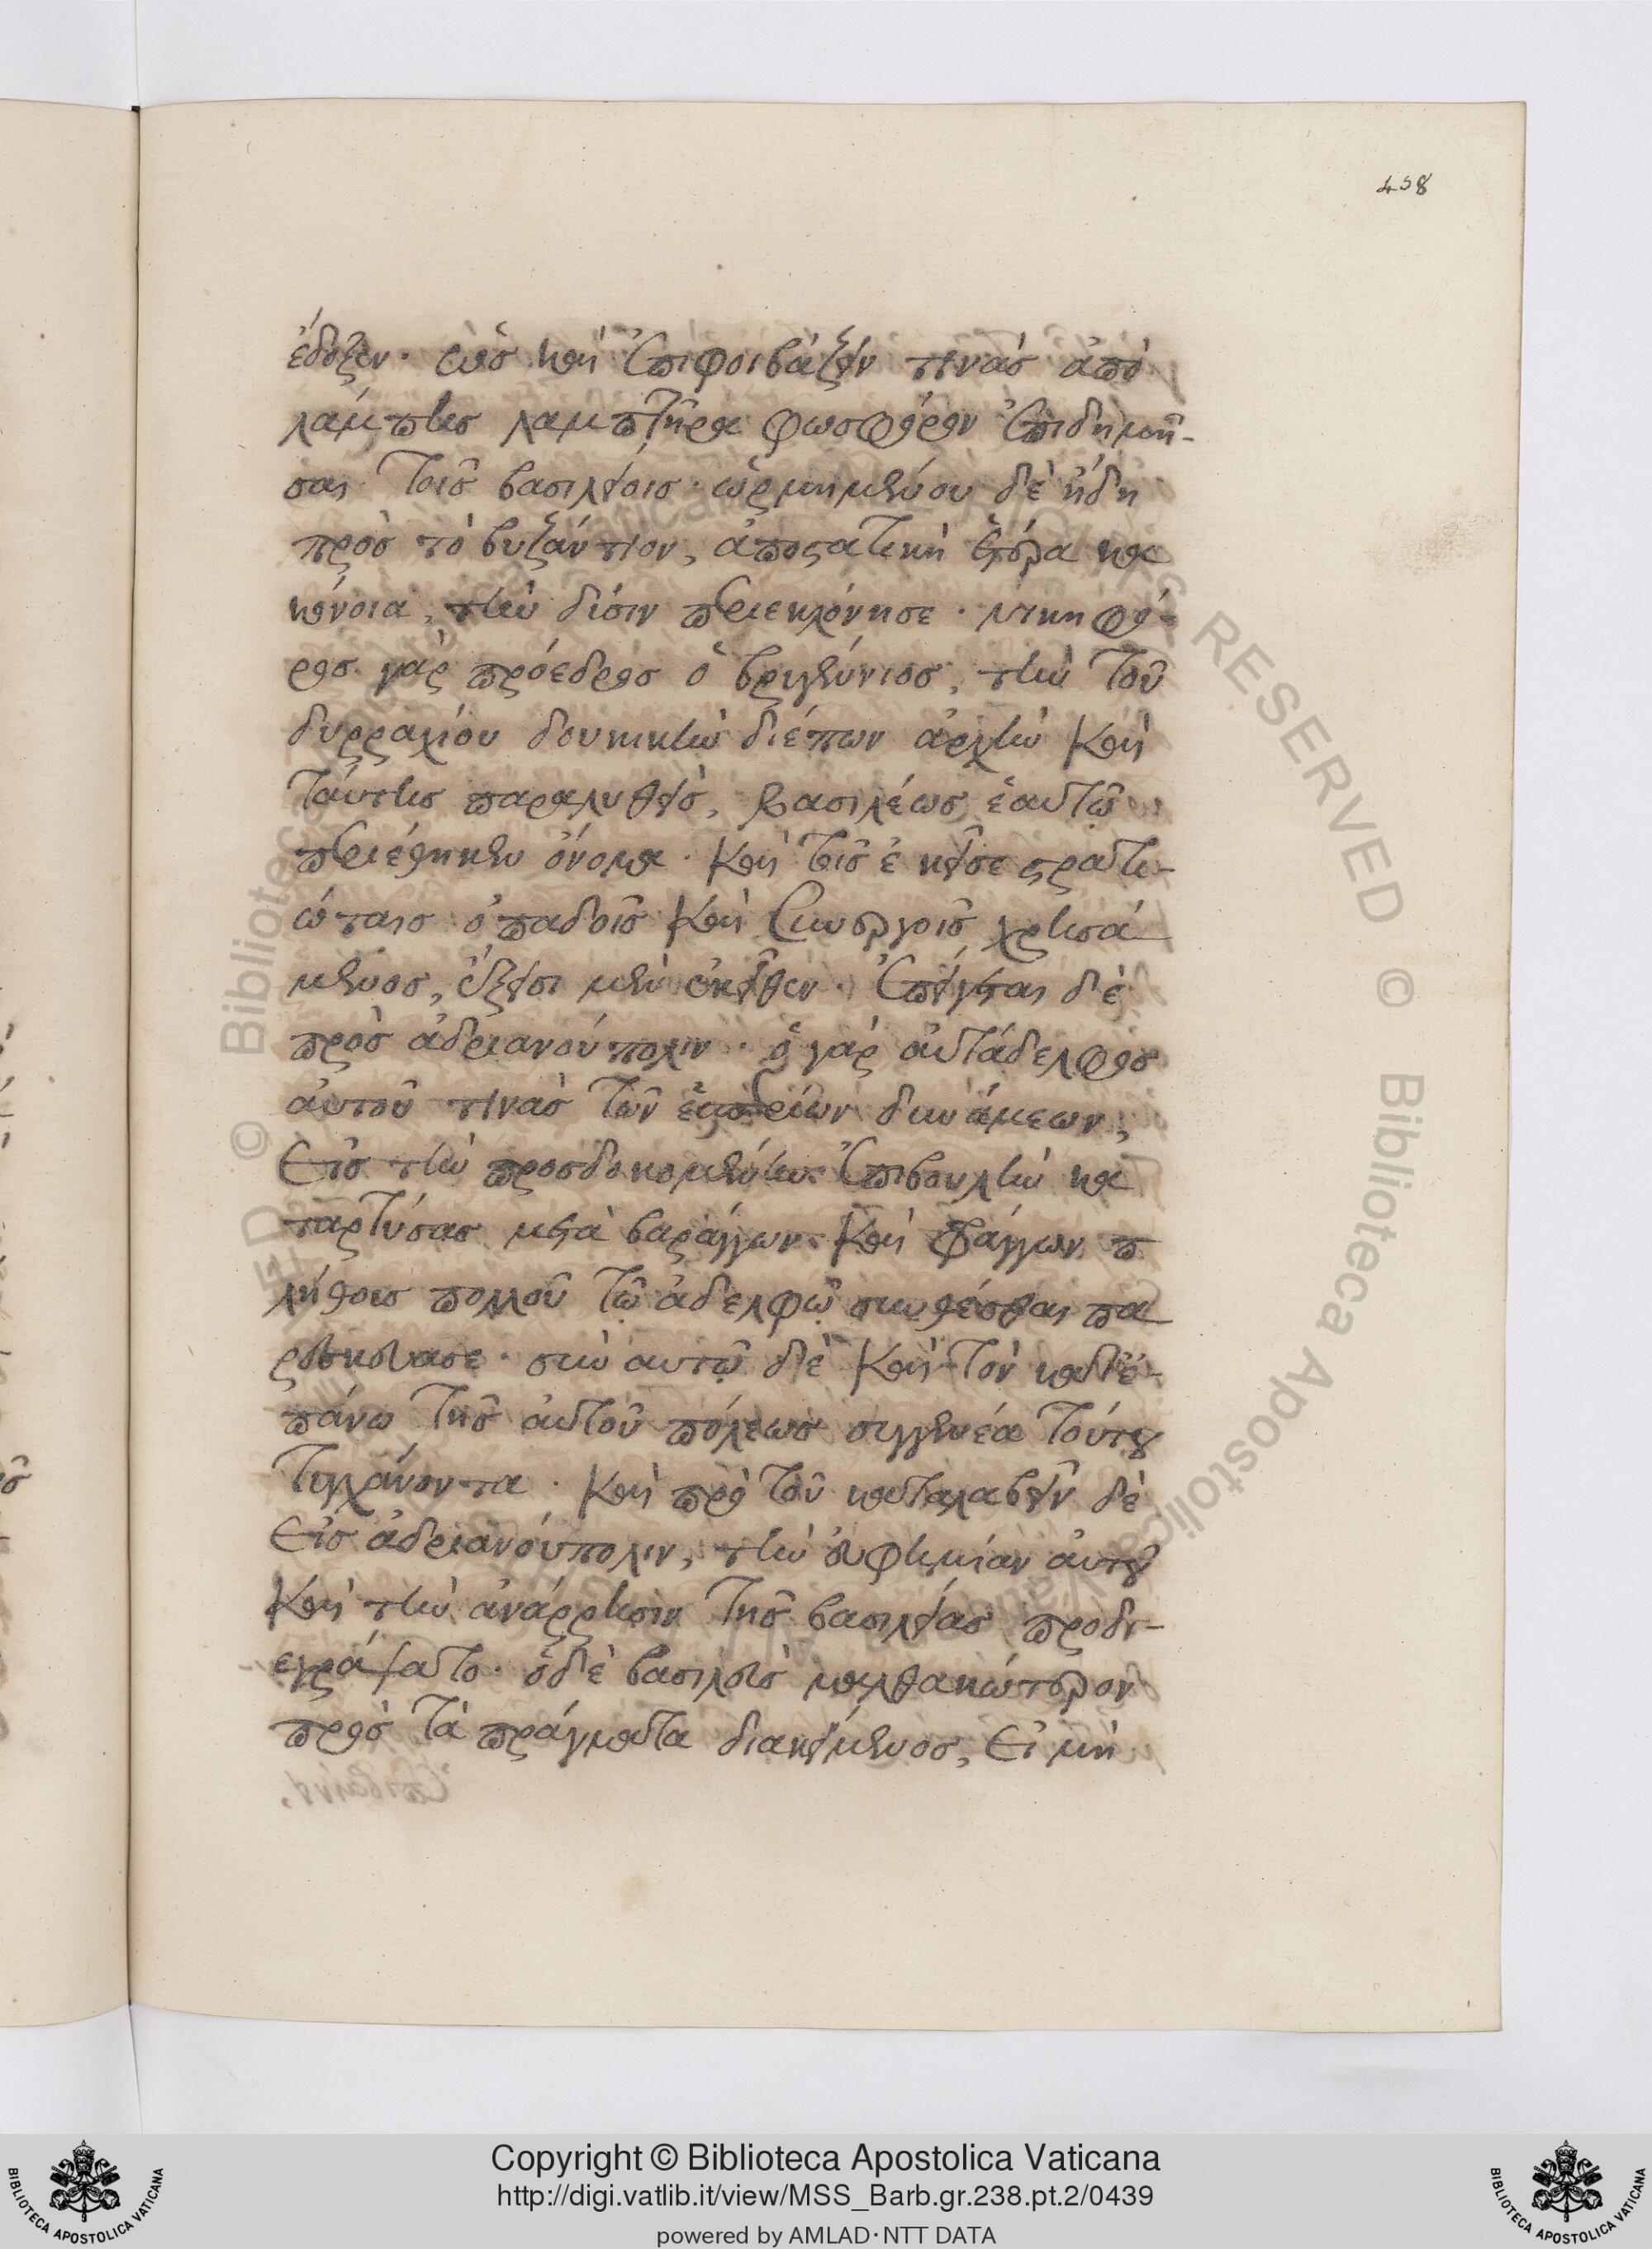 458
ἔδοξεν· ὡς καὶ ἐπιφοιβάζειν τινὰς ἀπὸ
λάμπης λαμπτῆρα φωσφόρον ἐπιδημῆ-
σαι τοῖς βασιλείοις· ὡρμημένου δὲ ἤδη
πρὸς τὸ βυζάντιον, ἀποστατικὴ ἑτέρα κα
κόνοια, τὴν δύσιν περιεκλόνησε· νικηφό-
ρος γὰρ πρόεδρος ὁ βρυέννιος, τὴν τοῦ
δυρραχίου δουκικὴν διέπων ἀρχὴν καὶ
ταύτης παραλυθεὶς, βασιλέως ἑαυτῷ
περιέθηκεν ὄνομα· καὶ τοῖς ἐκεῖσε στρατι-
ώταις ὀπαδοῖς καὶ συνεργοῖς χρησά
μενος, ἔξεισι μὲν ἐκεῖθεν· ἐπείγεται δὲ
πρὸς ἀδριανούπολιν· ὁ γὰρ αὐτάδελφος
αὐτοῦ τινὰς τῶν ἑσπερίων δυνάμεων,
εἰς τὴν προσδοκομένην ἐπιβουλὴν κα
ταρτύσας μετὰ βαράγγων καὶ φράγγων π
λήθους πολλοῦ τῷ ἀδελφῷ συνθέσθαι πα
ρεσκεύασε· σὺν αὐτῷ δὲ καὶ τὸν κατε-
πάνω τῆς αὐτοῦ πόλεως συγγενέα τούτου
τυγχάνοντα· καὶ πρὸ τοῦ καταλαβεῖν δὲ
εἰς ἀδριανούπολιν, τὴν εὐφημίαν αὐτοῦ
καὶ τὴν ἀνάρρησιν τῆς βασιλείας προδι-
εγράψατο· ὁ δὲ βασιλεὺς μαλθακώτερον
πρὸς τὰ πράγματα διακείμενος, εἰ μὴ
© Biblioteca Apostolica Vaticana ALL RIGHTS RESERVED
Copyright © Biblioteca Apostolica Vaticana
http://digi.vatlib.it/view/MSS_Barb.gr.238.pt.2/0439
powered by AMLAD·NTT DATA
BIBLIOTECA APOSTOLICA VATICANA
BIBLIOTECA APOSTOLICA VATICANA